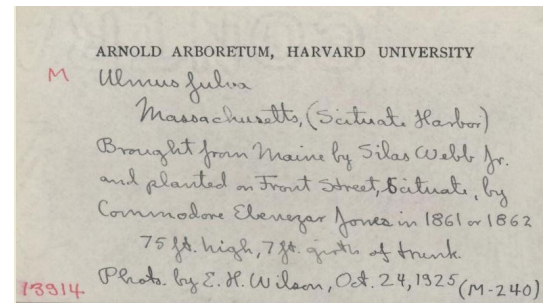 ARNOLD ARBORETUM, HARVARD UNIVERSITY
M Ulmus fulva
Massachusetts, (Scituate Harbor)
Brought from Maine by Silas Webb Jr.
and planted on Front Street, Scituate, by
Commodore Ebenezar Jones in 1861 or 1862
75 ft. high, 7 ft. girth of trunk.
13914. Photo. by E. H. Wilson, Oct. 24, 1925 (M-240)